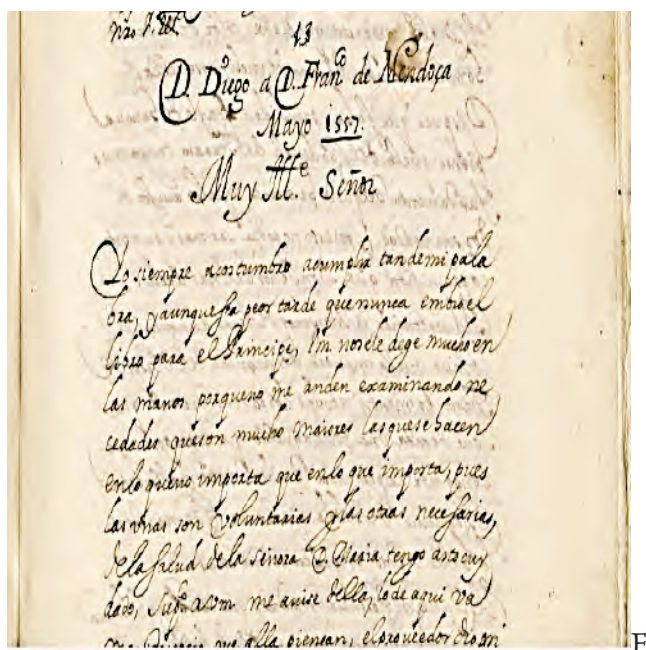 13
D. Diego a D. Fran.co de Mendoça
Mayo 1557.
Muy Ill.e Señor
Yo siempre acostumbro acumplir tandemi pala
bra, yaunque sea peor tarde que nunca embio el
libro para el Principe, Vm nosele dege mucho en
las manos porqueno me anden examinando ne
cedades queson mucho maiores las quese hacen
enlo queno importa que enlo que importa, pues
las unas son voluntarias ylas otras necesarias,
dela salud dela señora D. Maria tengo arto cuy
dado, me avise della, lo de aqui va
alla piensan, el proveedor
E